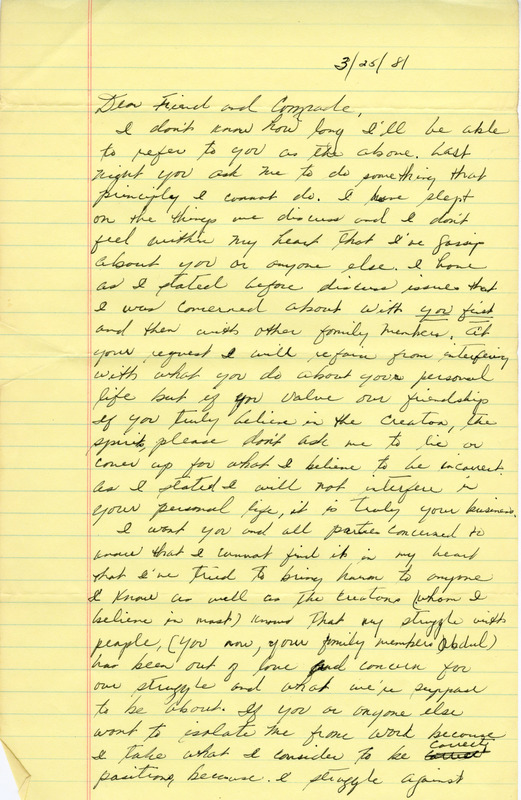 3/25/81
Dear Friend and Comrade,
I don't know how long I'll be able
to refer to you as the above. Last
night you ask me to do something that
principly I cannot do. I have slept
on the things we discuss and I don't
feel within my heart that I've gossip
about you or anyone else. I have
as I stated before discuss issues that
I was concerned about with you first
and then with other family members. At
your request I will refrain from interfering
with what you do about your personal
life but if you value our friendship
If you truly believe in the Creator, the
spirit, please don't ask me to lie or
cover up for what I believe to be incorrect.
As I stated I will not interfere in
your personal life, it is truly your business.
I want you and all parties concerned to
know that I cannot find it in my heart
that I've tried to bring harm to anyone
I know as well as the Creator (whom I
believe in most) knows that my struggle with
people, (you now, your family members Abdul)
has been out of love and concern for
our struggle and what we're suppose
to be about. If you or anyone else
want to isolate me from work because
I take what I consider to be correct
positions, because I struggle against